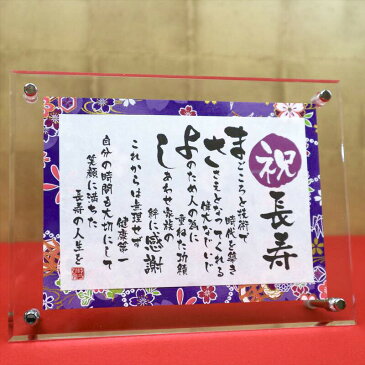 祝長寿
まごころと技術で
時代を築き
ささえとなってくれる
偉大なじいじ
よのため人の為に
重ねた功績
しあわせ家族の
絆に感謝
これからは無理せず
健康第一
自分の時間も大切にして
笑顔に満ちた
長寿の人生を